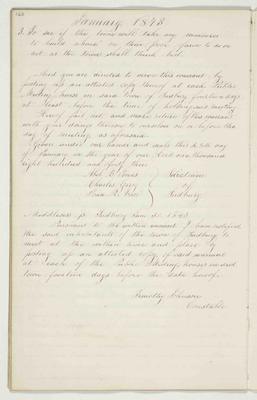 January 1843
3. To see if the town will take any measures
to build a house on their poor farm or
act as the town shall think best.
And you are directed to serve this warrant by
posting up an attested copy thereof at each Public
Meeting house in said town of Sudbury fourteen days
at least before the time of holding said meeting
Hereof fail not and make return of this warrant
with your doings thereon to ourselves on or before the
day of meeting as aforesaid.
Given under our hands and seals this day
of January in the year of our Lord one thousand
eight hundred and forty three
Selectmen
Charles Gerry of
Sudbury
Middlesex ss Sudbury Jan 1843
Pursuant to the within warrant I have notified
the said inhabitants of the town of Sudbury to
meet at the within time and place by
posting up an attested copy of said warrant
at each of the Public Meeting houses in said
town fourteen days before the date hereof.
Timothy
Constable